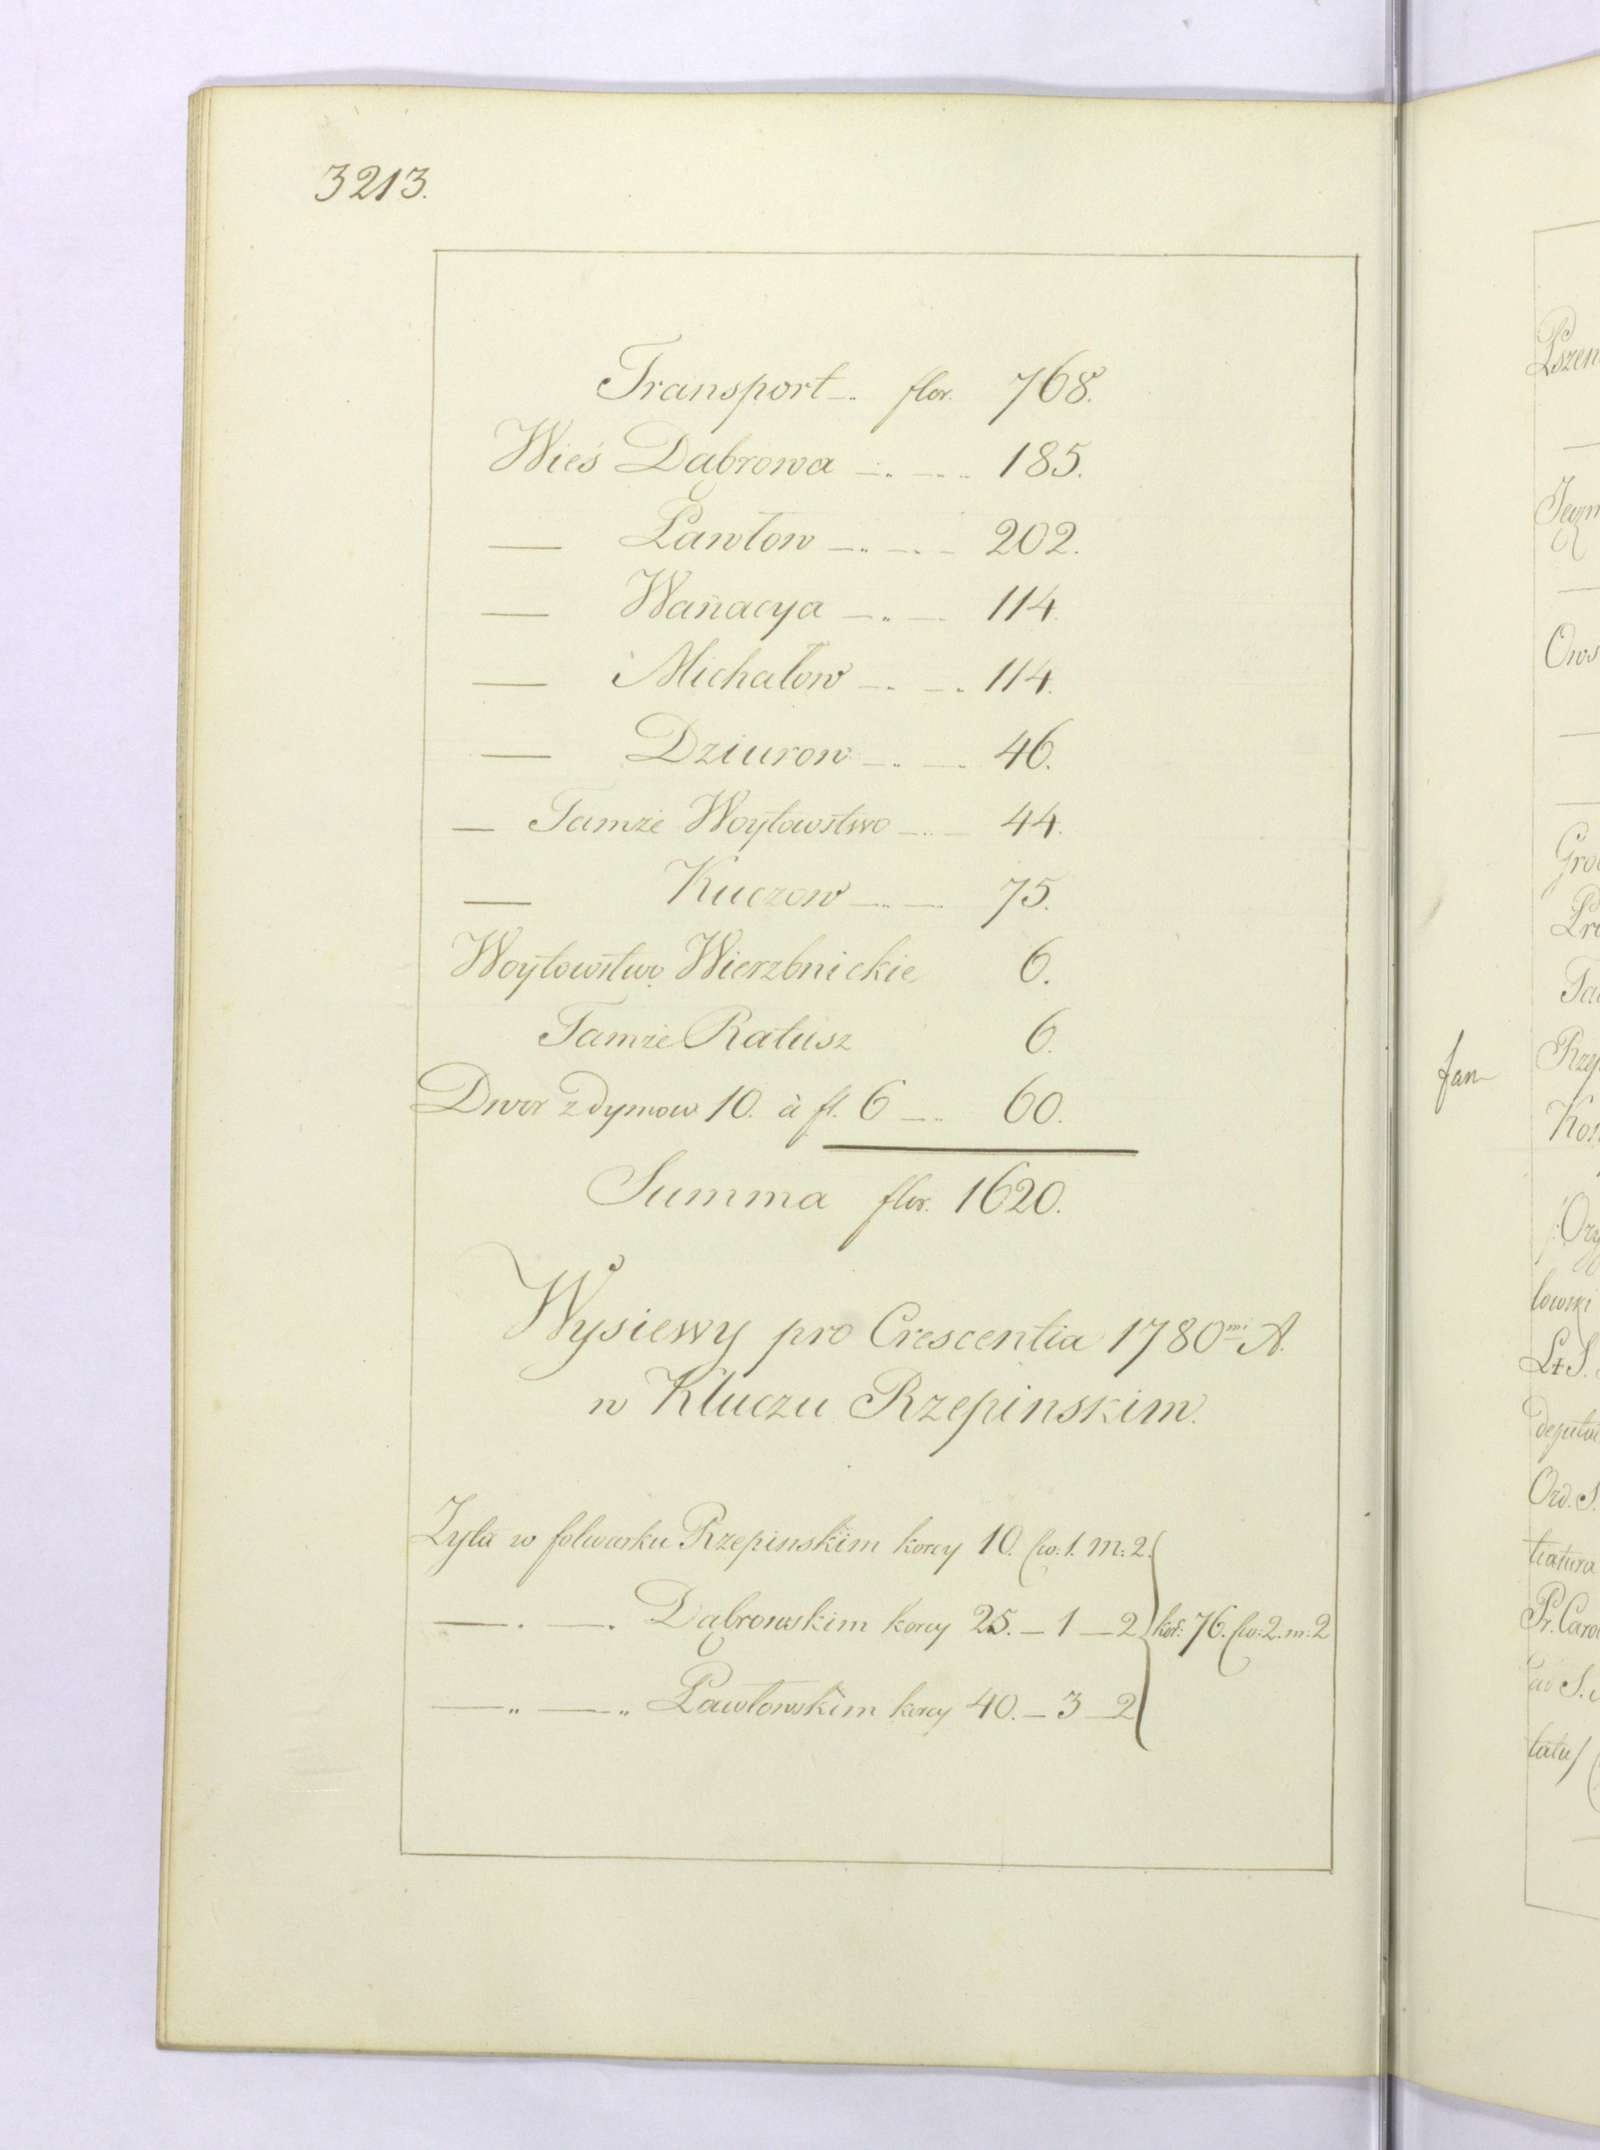 3213.
Transport -.. flor. 768.
Wieś Dąbrowa -.. -.. 185.
— Pawłow -.. -.. 202.
— Wanacya -.. — 114.
— Michałow -.. -.. 114.
— Dziurow -.. -.. 46.
— Tamże Woytowstwo -.. — 44.
— Kuczow -.. — 75.
Woytowstwo Wierzbnickie 6.
Tamże Ratusz 6.
Dwor z dymow 10. à fl. 6 -.. 60.
Summa flor. 1620.
Wysiewy pro Crescentia 1780mi A.
w Kluczu Rzepinskim.
Zyta w folwarku Rzepinskim korcy 10. ćw: 1. m: 2.
—. —. Dąbrowskim korcy 25. — 1 — 2 kor: 76. ćw: 2. m: 2
—„ —„ Pawłowskim korcy 40. — 3 — 2
Pszen
Jęczm
Ows
Gro
Pr
Ta
fan
Rzę
Kon
Ory
lowski
L+S.
deputa
Ord. S.
tiatura
Pr. Caro
S.
tatus